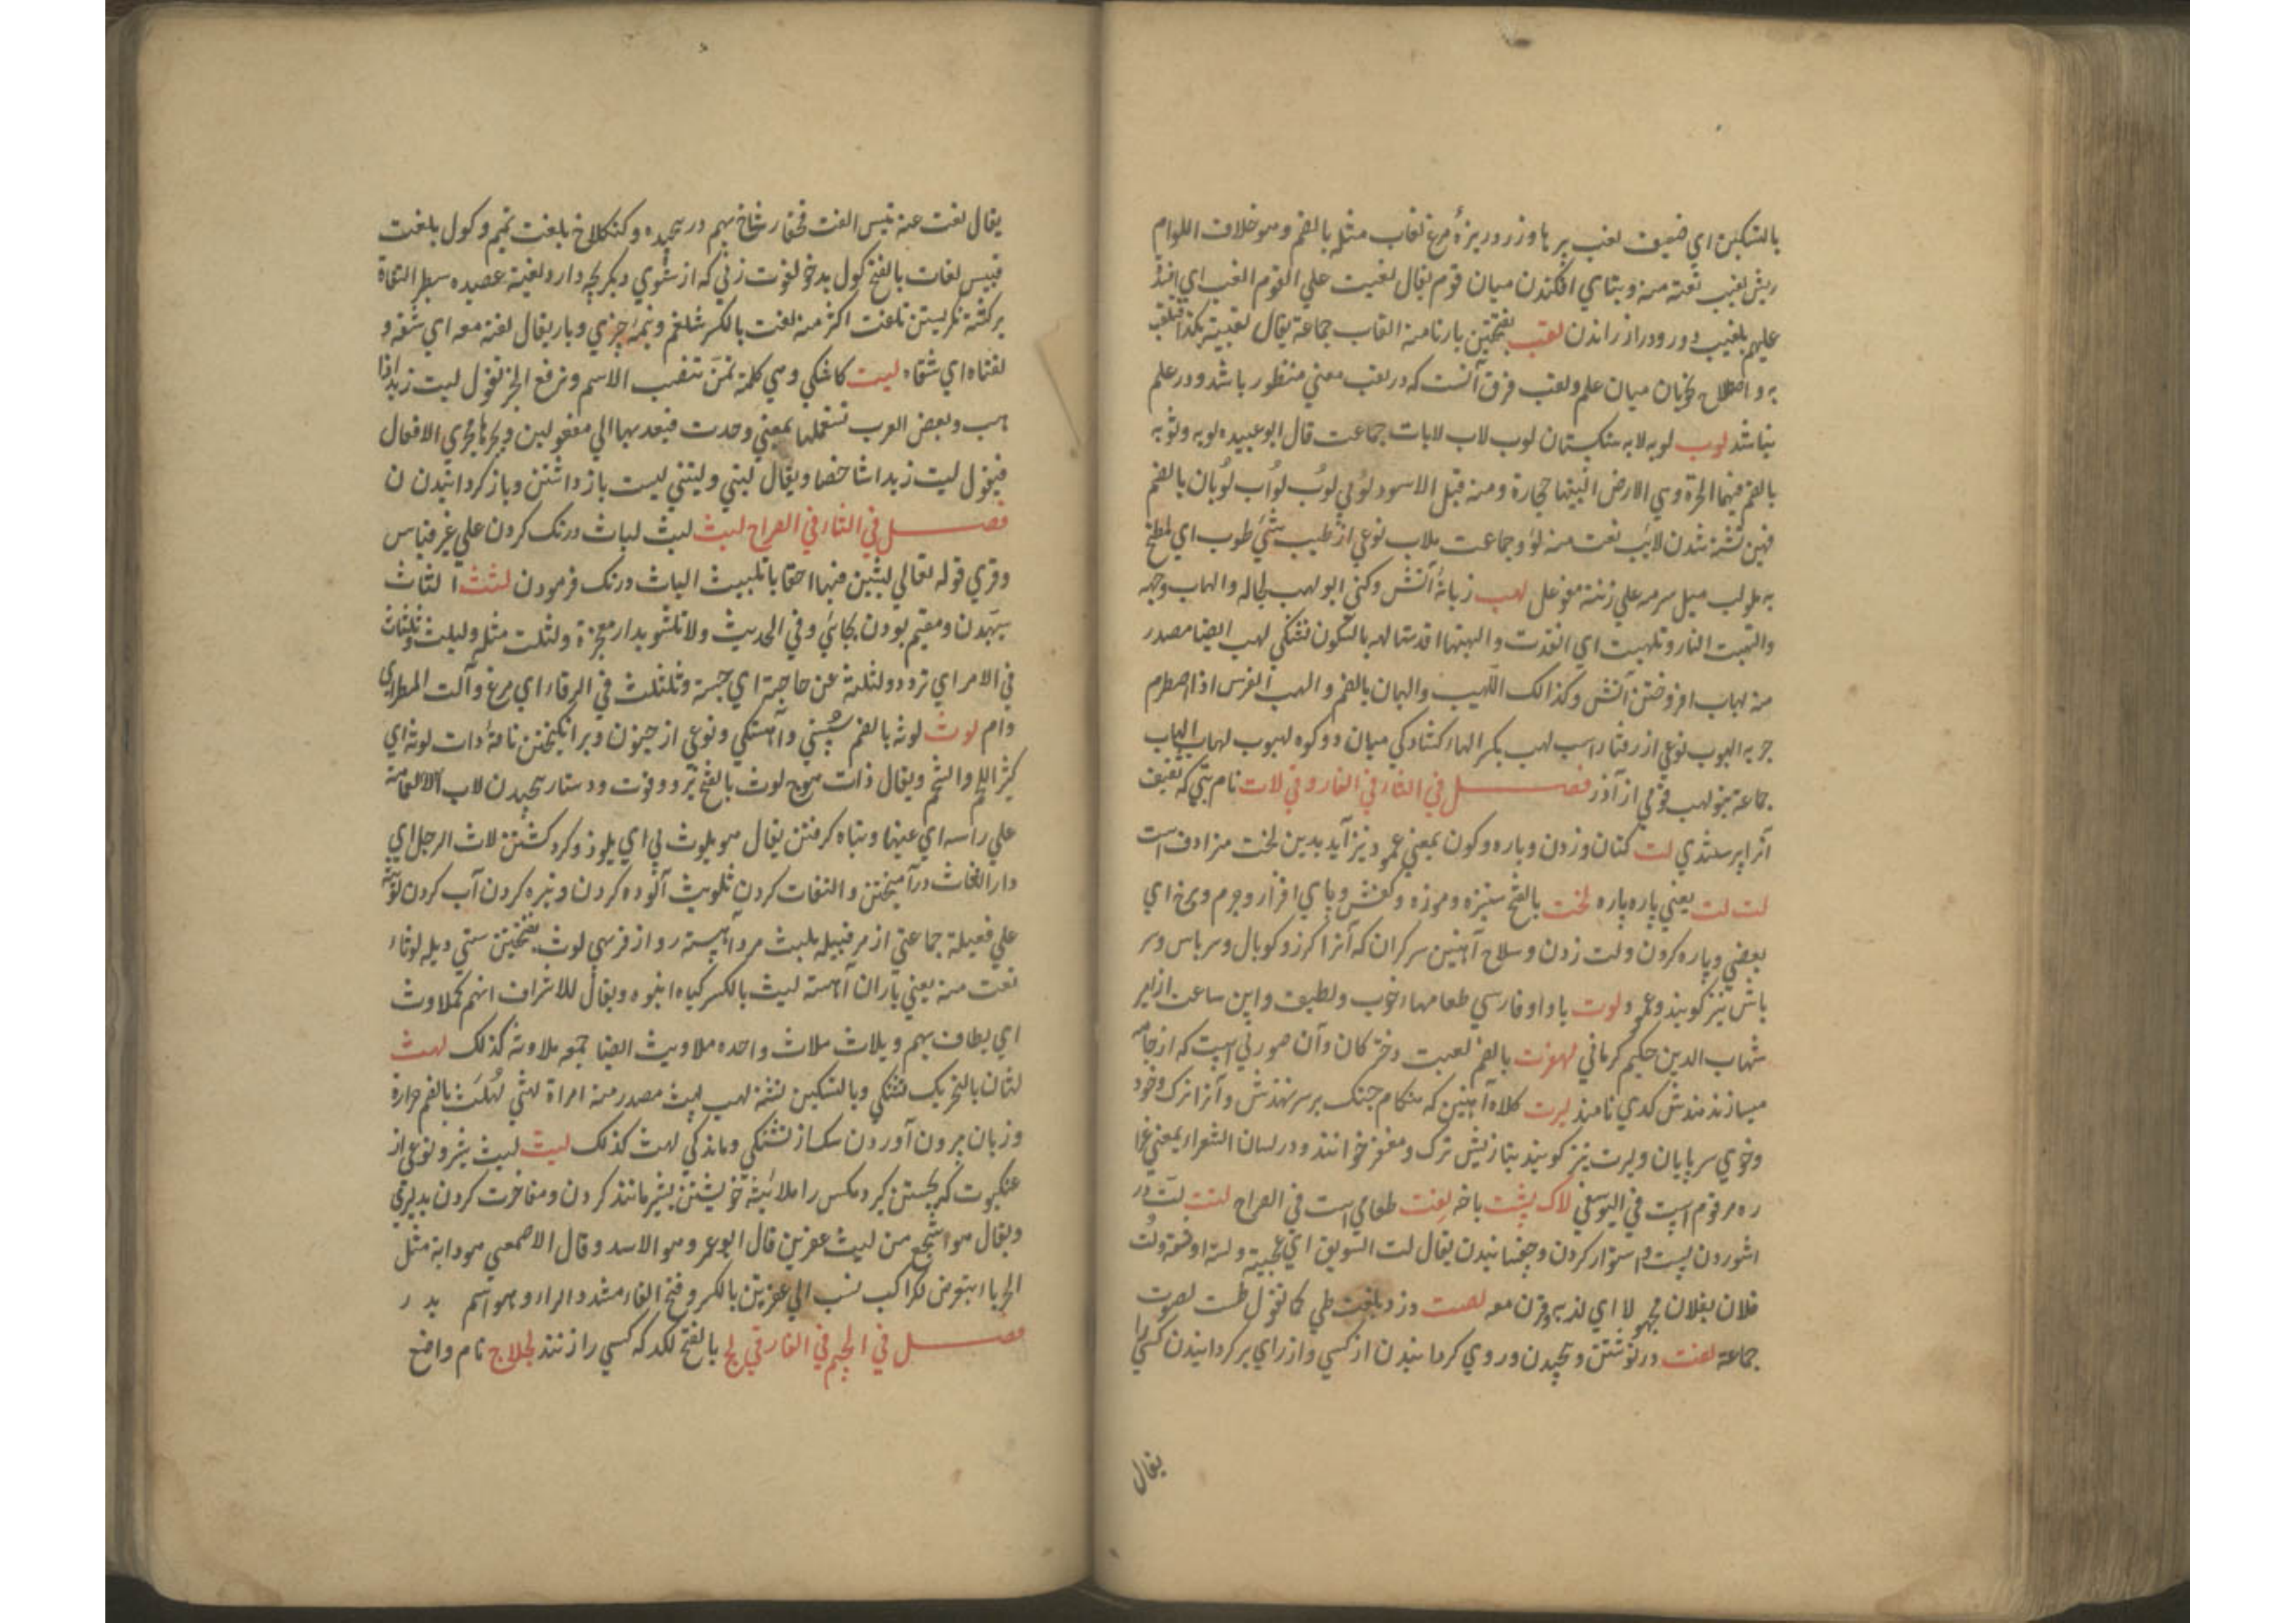 بالتسکین ای ضعیف لغب پر ها و زرد ریزهٔ مرغ لغاب مثله بالضم و هو خلاف اللوام
ریش لغیب نعته منه و بتاي افکندن میان قوم یقال لغبت علي القوم الغب اي افسد
علیهم بلغیب دور و دراز راندن لقب بفتحتین بارنامه القاب جماعة یقال لقبته بکذا فتلقب
به و میان علم و لقب فرق آنست که در لقب معني منظور باشد و در علم
نباشد لوب لوبه لابه سنکستان لوب لاب لابات جماعت قال ابو عبیده لوبه و نوبه
بالضم فیهما الحرة و هي الارض البستها حجارة و منه قیل للاسود لوبي لوب لواب لوبان بالضم
تشنه شدن لایب نعت منه لوب جماعت ملاب نوعي از طیب شئ ملوب اي ملطخ
به ملولب میل سرمه علي زنة مفوعل لهب زبانهٔ آتش و کني ابو لهب لجماله و الهاب وجهه
و التهبت النار و تلهبت اي اتقدت و الهبتها اوقدتها لهبه بالسکون تشنکي لهب ایضا مصدر
منه لهاب افروختن آتش و کذالک اللهیب و لهبان بالضم و الهب الفرس اذا اضطرم
جریه الهوب نوعي از رفتار اسب لهب بکسر الهاء کشادکي میان دو کوه لهوب لهاب الهاب
جماعة بنو لهب قومي از آزد فصل في التاء في الفارسي لات نام بتي که ثقیف
آنرا پرستیدي لت کتان و زدن و پاره و کون بمعني عمود نیز آید بدین لخت مترادف است
لت لت یعني پاره پاره لخت بالفتح ستیزه و موزه و کفش و پاي افزار و جرم و یخ اي
بعضي و پاره کردن و لت زدن و سلاح آهنین سرکران که آنرا کرز و کوپال و سرپاس و سر
پاش نیز کویند و عمود لوت با واو فارسي طعامهاء خوب و لطیف و این ساعت از امیر
شهاب الدین حکیم کرماني لهفت بالضم لعبت دختر کان و آن صورتي است که از جامه
میسازند هندش کدي نامند لرت کلاه آهنین که هنکام جنک بر سر نهندش و آنرا ترک و خود
و خوي سر پایان و لیرت نیز کویند بتازیش ترک و مغفر خوانند و در لسان الشعرا بمعني غرا
ره مرقوم است في الیوسفي لاک پشت باخه لفت طعامي است في الصراح لتت لت در
اشوردن پست و استوار کردن و جفسانیدن یقال لت السویق اي عجبیته و لته و لت
فلان بفلان مجهولا اي لز به و قرن معه لصت دزد بلغت طي کما تقول طست لصوت
جماعة لفت در نوشتن و پیچیدن و روي کردانیدن از کسي و از راي برکردانیدن کسي را
یقال
یقال لفت عنه تیس الفت شاخ بهم در پیچیده و کند کلاخ بلغت تمیم و کول بلغت
قیس لفات بالفتح کول بدخو لفوت زني که از شوي دیکر بچه دارد لفیتة عصیده سطبر التفات
برکشته نکریستن تلفت اکثر منه لفت بالکسر شلغم و نیمهٔ چیزي و بار یقال لفته معه اي شقه و
لفتاه اي شقاه لیت کاشکي و هي کلمة تمن تنصب الاسم و ترفع الخبر تقول لیت زیدا ذا
هب و بعض العرب تستعملها بمعني وجدت فیعدیها الي مفعولین و یجریها مجري الافعال
فیقول لیت زیدا شاخصا و یقال لیتي و لیتني لیت باز داشتن و باز کردانیدن ن
فصل في الثاء في الصراح لبث لبث لباث درنک کردن علي غیر قیاس
و قري قوله تعالي لبثین فیها احقابا تلبیث الباث درنک فرمودن لثث الثاث
بیهدن و مقیم بودن بجائي و في الحدیث و لا تلثوا بدار معجزة و لثلث مثله و تلثلث
في الامر اي تردد و لثلثه عن حاجته اي حبسه و تلثلث في
دام لوث لوثه بالضم سستي و آهستکي و نوعي از جنون و برانکیختن ناقهٔ ذات لوثه اي
کثیر اللحم و الشحم و یقال ذات هوج لوث بالفتح نیرو و قوت و دستار پیچیدن لاث العمامة
علي راسه اي عصبها و پناه کرفتن یقال هو یلوث بي اي یلوذ و کرد کشتن لاث الرجل اي
دار التیاث درآمیختن و التفات کردن تلویث آلوده کردن و تیره کردن آب کردن لویثة
علي فعیلة جماعتي از هر قبیله ملیث مرد آهسته رو از فربهي لوث بفتحتین سستي دیمة لوثاء
نعت منه یعني باران آهسته لیث بالکسر کیاه انبوه و یقال للاشراف انهم لملاوث
اي یطاف بهم و یلاث ملاث واحده ملاویث ایضا جمع ملاوثه کذلک لهث
لهثان بالتحریک تشنکي و بالتسکین تشنه لهث لهث مصدر منه امراة لهثي لهاث بالضم حرارة
و زبان برون آوردن سک از تشنکي و ماندکي لهث کذلک لیث لیث شیر و نوعي از
عنکبوت که بجستن کیرد مکس را ملایثه خویشتن بشیر مانند کردن و مفاخرت کردن بدلیري
و یقال هو اشجع من لیث عفرین قال ابو عمرو هو الاسد و قال الاصمعي هو دابة مثل
الحرباء یتعرض للراکب نسب الي عفرین بالکسر و فتح الفاء مشدد الراء و هو اسم بد ر
فصل في الجیم في الفارسي لج بالفتح لکد که کسي را زنند لجلاج نام واضع